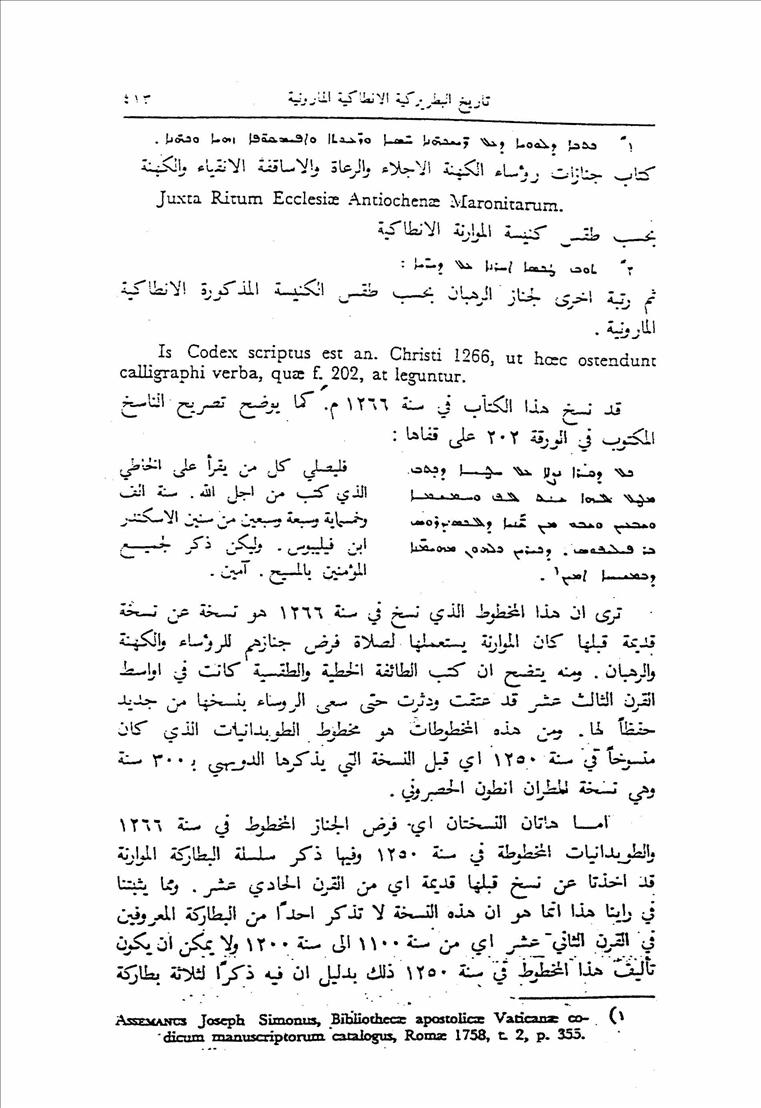 تاريخ البطريركية الانطاكية المارونية ٤١٣
كتاب جنازات رؤساء الكهنة الاجلاء والرعاة والاساقفة الانقياء والكهنة
Juxta Ritum Ecclesiæ Antiochenæ Maronitarum.
بحسب طقس كنيسة الموارنة الانطاكية
ثم رتبة اخرى لجناز الرهبان بحسب طقس الكنيسة المذكورة الانطاكية
المارونية .
Is Codex scriptus est an. Christi 1266, ut hœc ostendunt
calligraphi verba, quæ f. 202, at leguntur.
قد نسخ هذا الكتاب في سنة ١٢٦٦ م. كما يوضح تصريح الناسخ
المكتوب في الورقة ٢٠٢ على قفاها :
فليصلي كل من يقرأ على الخاطي
الذي كتب من اجل الله . سنة الف
وخمساية وسبعة وسبعين من سنين الاسكندر
ابن فيليبوس . وليكن ذكر لجميع
المؤمنين بالمسيح . آمين .
ترى ان هذا المخطوط الذي نسخ في سنة ١٢٦٦ هو نسخة عن نسخة
قديمة قبلها كان الموارنة يستعملها لصلاة فرض جنازهم للرؤساء والكهنة
والرهبان . ومنه يتضح ان كتب الطائفة الخطية والطقسية كانت في اواسط
القرن الثالث عشر قد عتقت ودثرت حتى سعى الروساء بنسخها من جديد
حفظاً لها . ومن هذه المخطوطات هو مخطوط الطوبدانيات الذي كان
منسوخاً في سنة ١٢٥٠ اي قبل النسخة التي يذكرها الدويهي بـ ٣٠٠ سنة
وهي نسخة المطران انطون الحصروني .
امـا هاتان النسختان اي فرض الجناز المخطوط في سنة ١٢٦٦
والطوبدانيات المخطوطة في سنة ١٢٥٠ وفيها ذكر سلسلة البطاركة الموارنة
قد اخذتا عن نسخ قبلها قديمة اي من القرن الحادي عشر . ومما يثبتنا
في راينا هذا انما هو ان هذه النسخة لا تذكر احداً من البطاركة المعروفين
في القرن الثاني عشر اي من سنة ١١٠٠ الى سنة ١٢٠٠ ولا يمكن ان يكون
تأليف هذا المخطوط في سنة ١٢٥٠ ذلك بدليل ان فيه ذكراً لثلاثة بطاركة
١) Assemanus Joseph Simonus, Bibliothecæ apostolicæ Vaticanæ co-
dicum manuscriptorum catalogus, Romæ 1758, t. 2, p. 355.